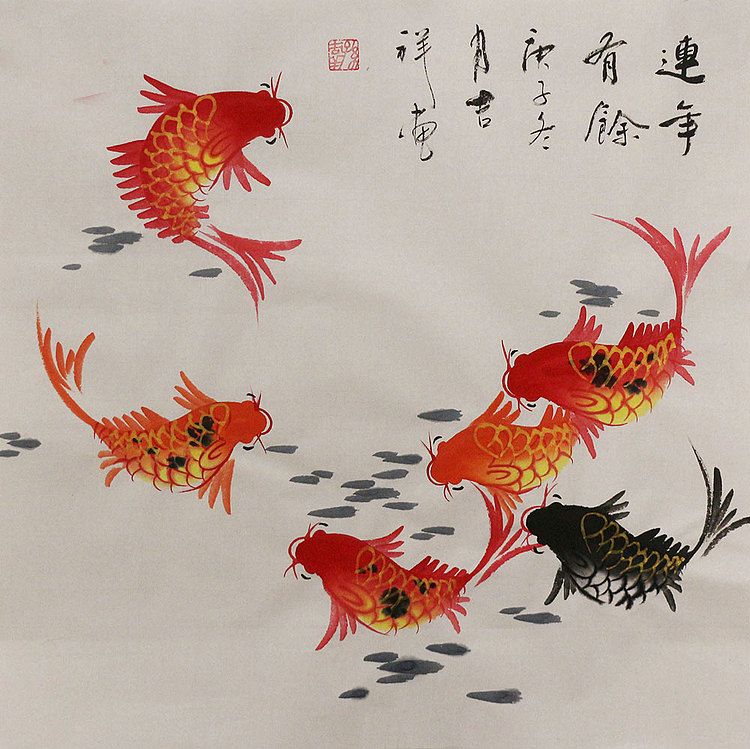 連年
有餘
庚子冬
肖吉
祥画